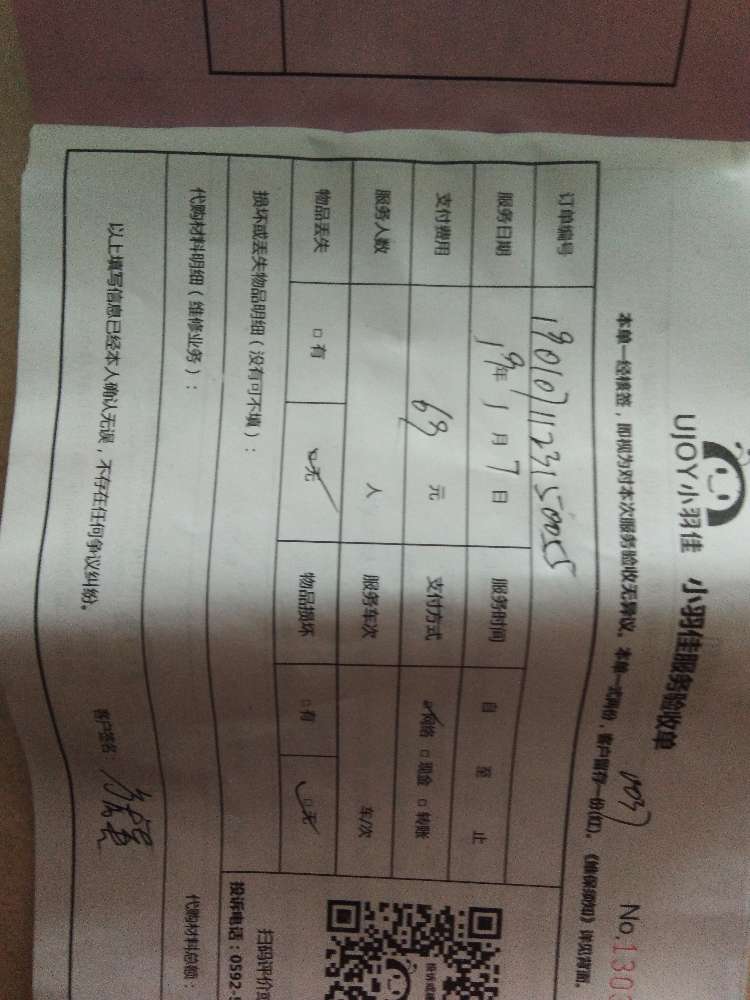 UJOY小羽佳 小羽佳服务验收单
No.130
本单一经核签，即视为对本次服务验收无异议。本单一式两份，客户留存一份(红)。《维保须知》详见背面。
订单编号 190107112315005
服务日期 19年1月7日 服务时间 自 至 止
支付费用 69元 支付方式 ☑网络 □现金 □转账
服务人数 人 服务车次 车/次
物品丢失 □有 ☑无 物品损坏 □有 ☑无
损坏或丢失物品明细（没有可不填）：
代购材料明细（维修业务）：
代购材料总额：
以上填写信息已经本人确认无误，不存在任何争议纠纷。
客户签名：
扫码评价
投诉电话：0592-